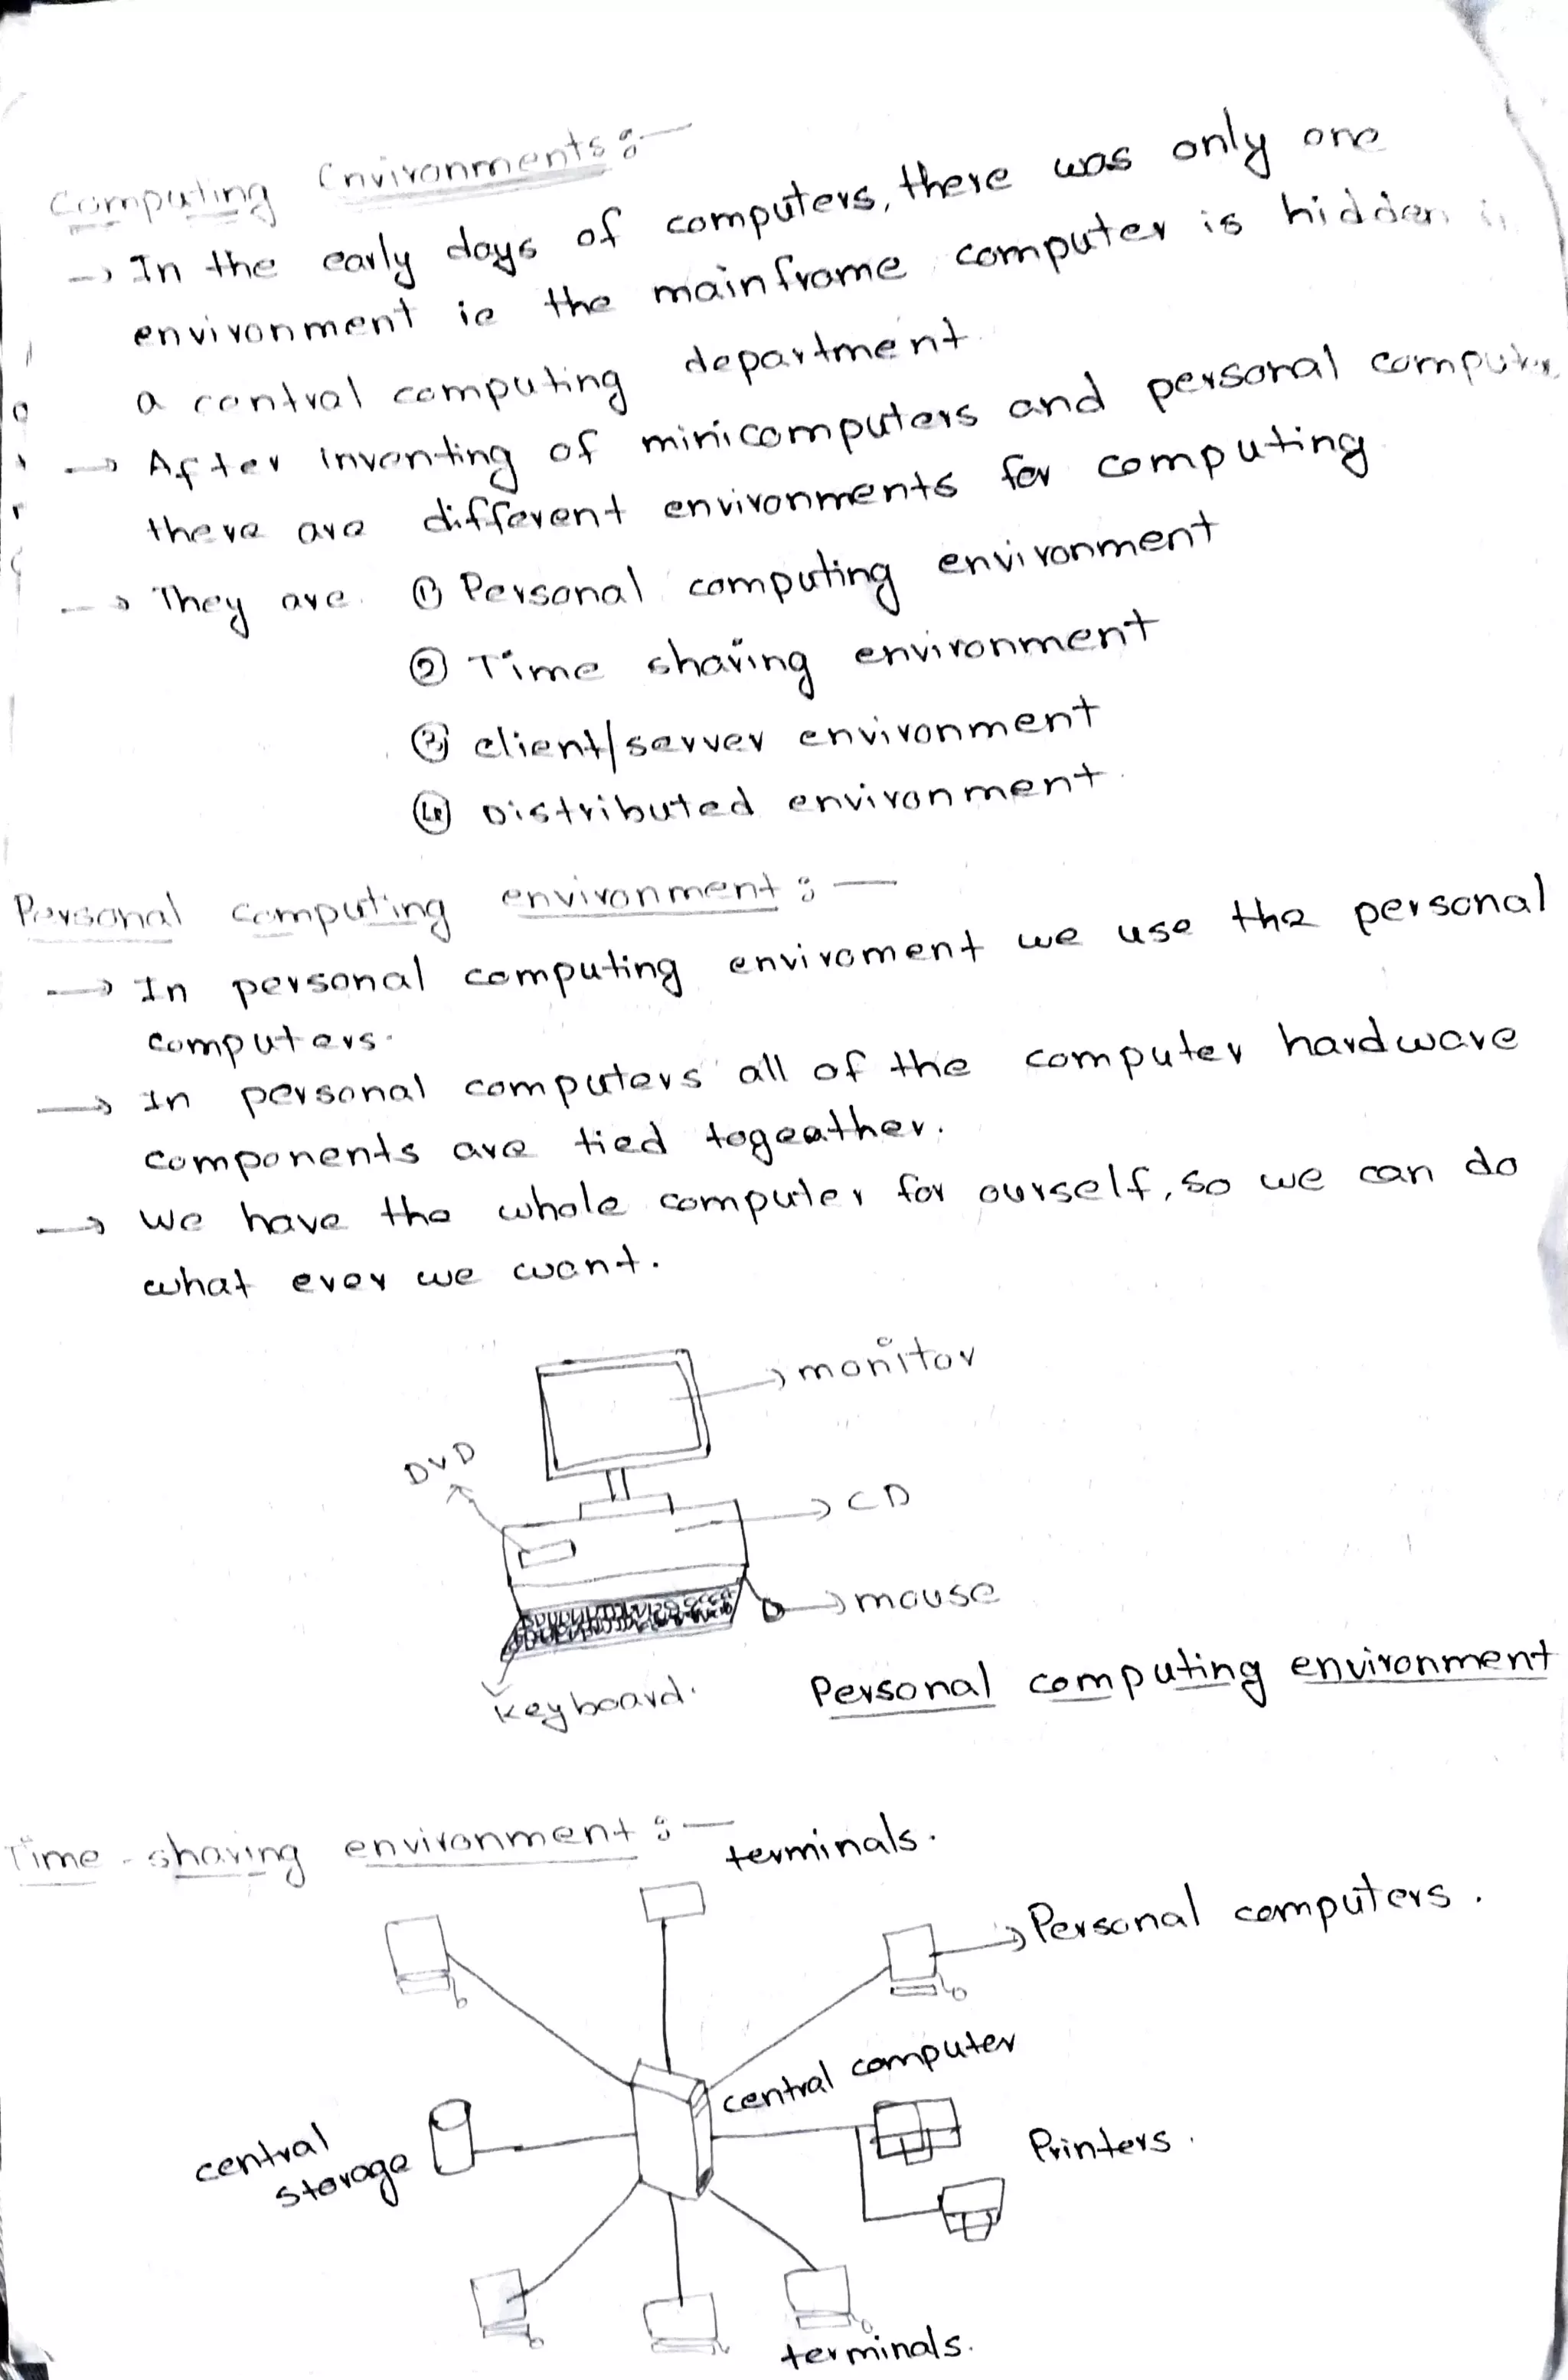 Computing Environments :-
→ In the early days of computers, there was only one
environment ie the mainframe computer is hidden in
a central computing department.
→ After inventing of minicomputers and personal computers
there are different environments for computing.
→ They are. ① Personal computing environment
② Time sharing environment
③ client/server environment
④ Distributed environment.
Personal computing environment :-
→ In personal computing enviroment we use the personal
computers.
→ In personal computers all of the computer hardware
components are tied togeather.
→ We have the whole computer for ourself, so we can do
what ever we want.
→ monitor
DVD
→ CD
→ mouse
Keyboard.
Personal computing environment
Time-sharing environment :-
terminals.
→ Personal computers.
central computer
central
storage
Printers.
terminals.